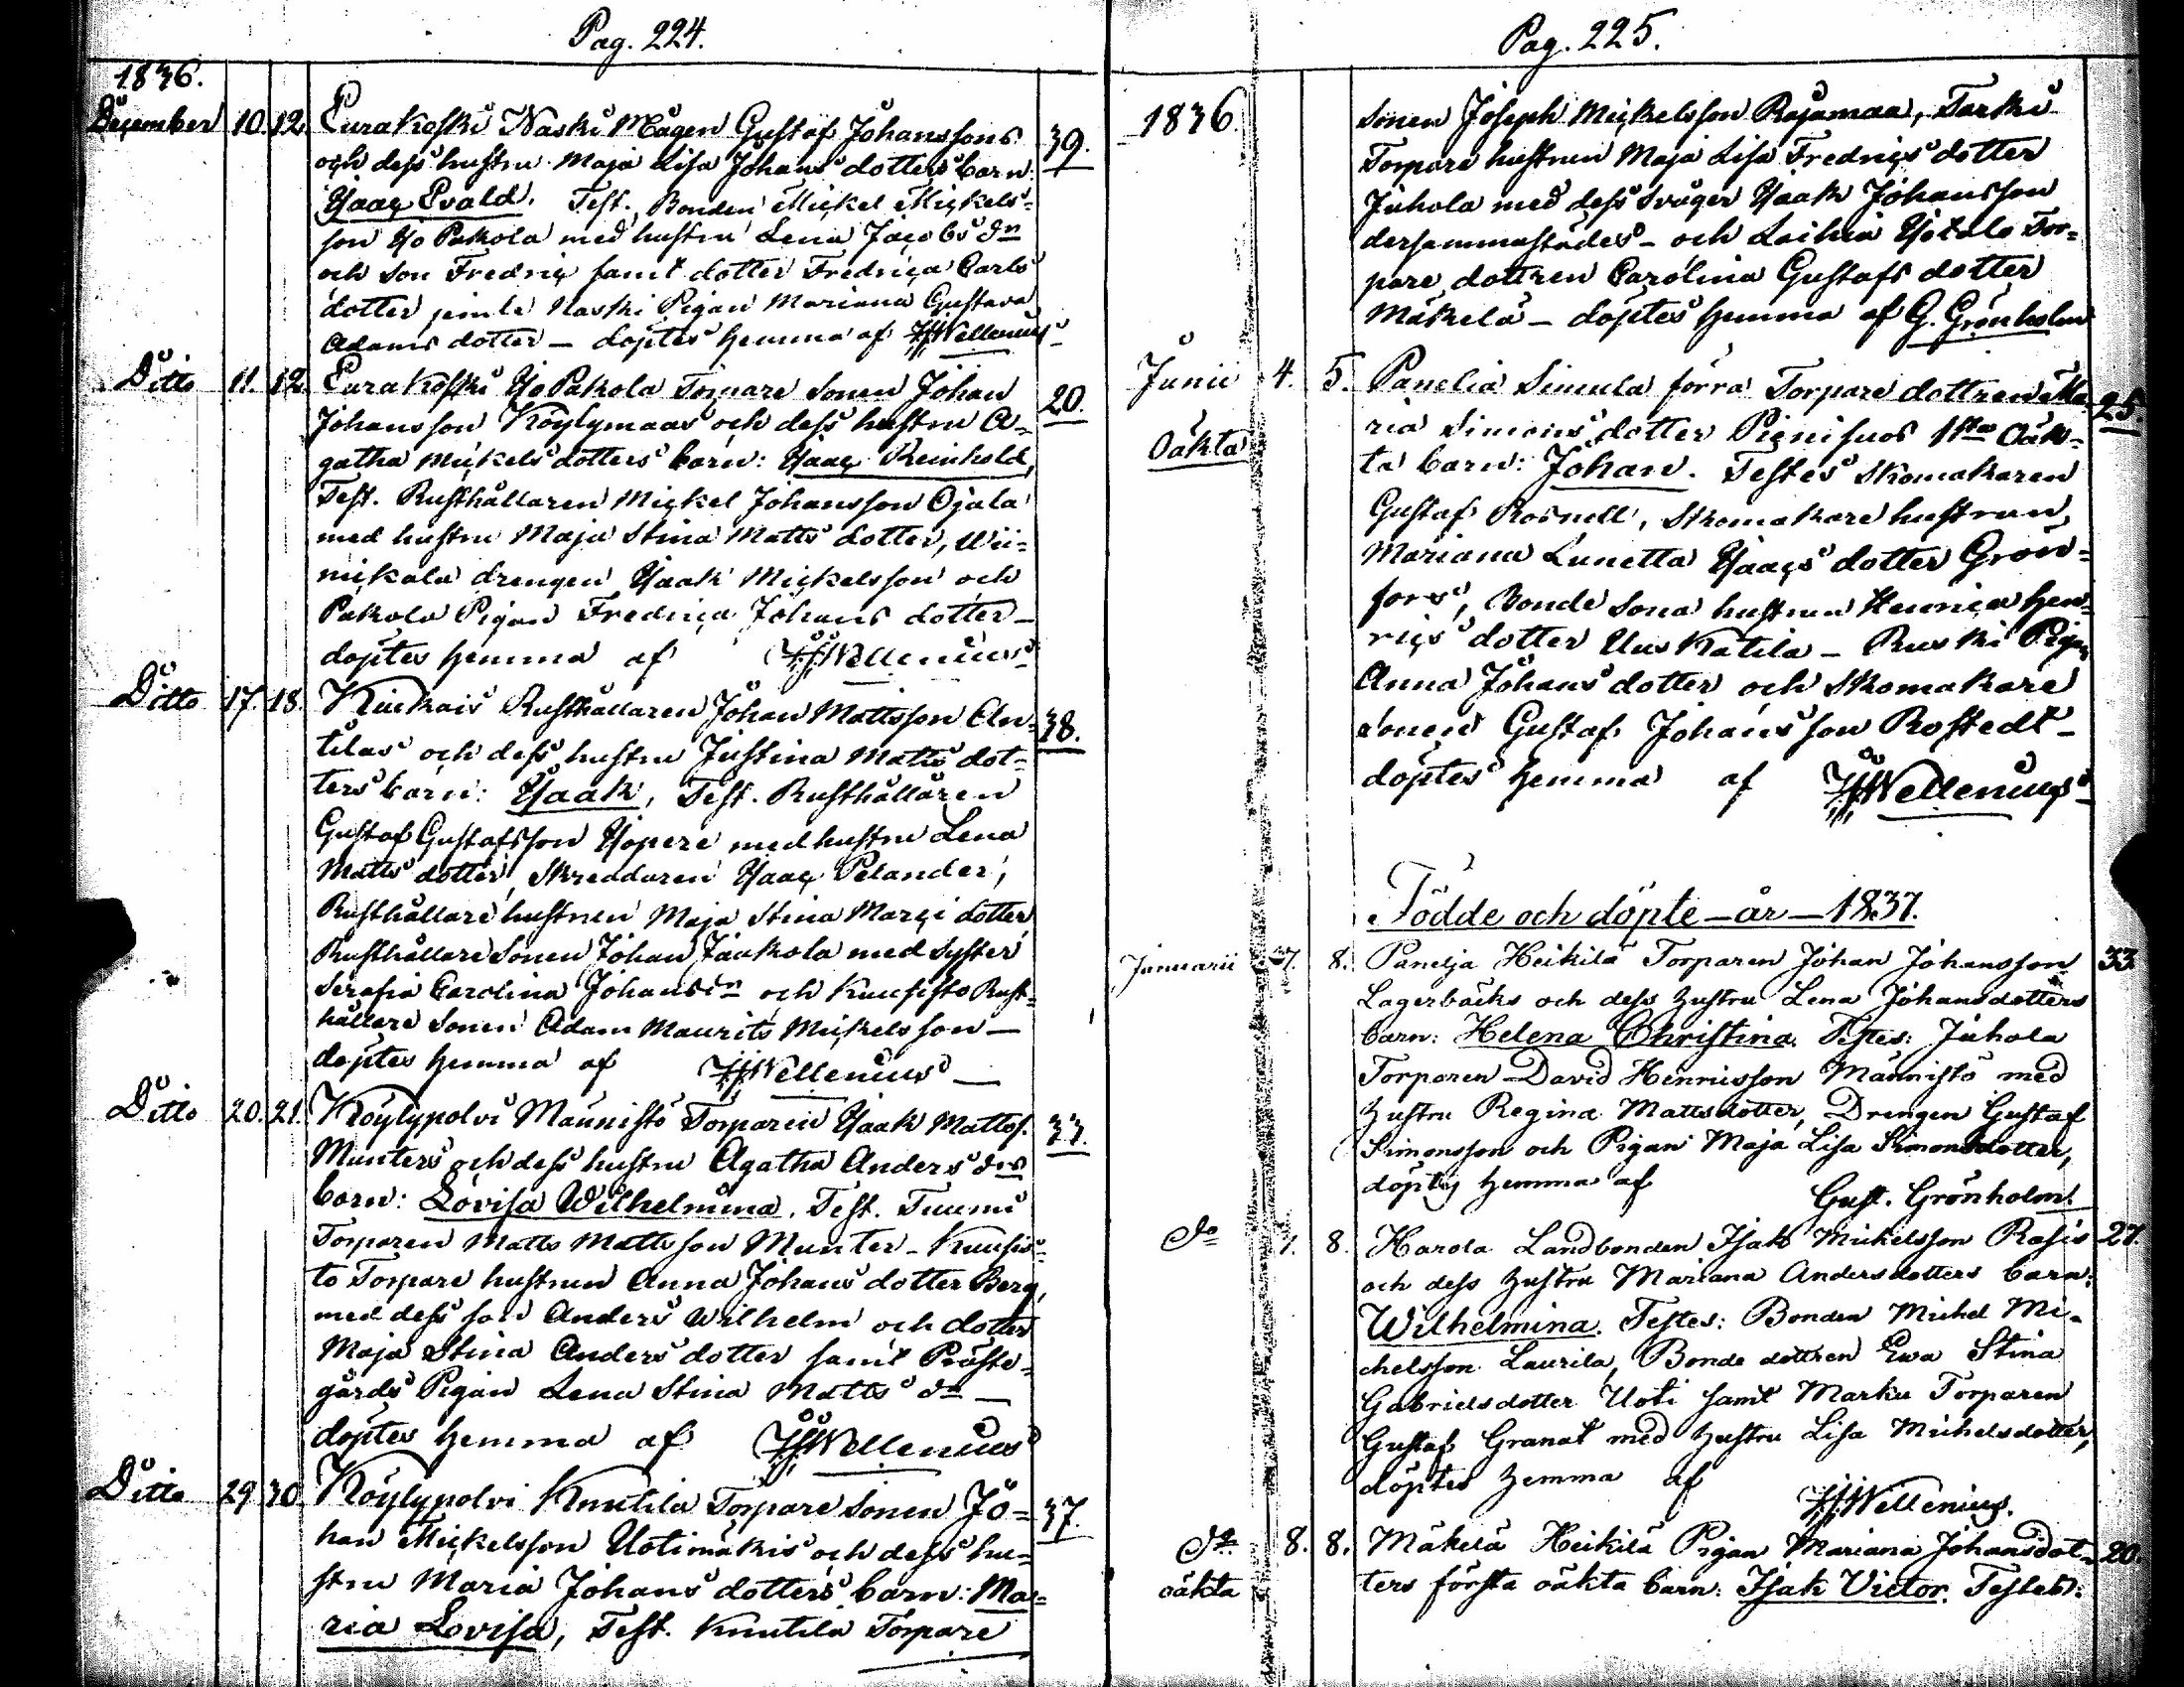 Pag. 224.
1836.
December 10. 12. Eurakoski Naski Mågen Gustaf Johanssons 39.
och dess hustru Maja Lisa Johans dotters barn:
Isaac Evald. Test. Bonden Mickel Mickels-
son Iso Pakola med hustru Lena Jacobs dr
och son Fredric samt dotter Fredrica Carls
dotter jemte Naski Pigan Mariana Gustava
Adams dotter — döptes hemma af Wellenius
Ditto 11. 12. Eurakoski Iso Pakola Torpare Sonen Johan 20.
Johansson Köylymaas och dess hustru A-
gatha Mickels dotters barn: Isaac Reinhold,
Test. Rusthållaren Mickel Johansson Ojala
med hustru Maja Stina Matts dotter, Wii-
nickala drengen Isaak Mickelsson och
Pakola Pigan Fredrica Johans dotter —
döptes hemma af Wellenius
Ditto 17. 18. Kiukais Rusthållaren Johan Mattsson An- 38.
tilas och dess hustru Justina Matts dot-
ters barn: Isaak, Test. Rusthållaren
Gustaf Gustafsson Yopere med hustru Lena
Matts dotter, Skreddaren Isaac Pelander,
Rusthållare hustrun Maja Stina Marci dotter
Rusthållare Sonen Johan Jaakola med Syster
Serafia Carolina Johans dr och Kuusisto Rust-
hållare Sonen Adam Maurits Mickelsson —
döptes hemma af Wellenius —
Ditto 20. 21. Köylypolvi Männistö Torparen Isaak Mattss. 33.
Munters och dess hustru Agatha Anders drs
barn: Lovisa Wilhelmina. Test. Tuumi
Torparen Matts Mattsson Munter — Kuusis-
to Torpare hustrun Anna Johans dotter Berg,
med dess son Anders Wilhelm och dotter
Maja Stina Anders dotter samt Präste-
gårds Pigan Lena Stina Matts dr —
döptes hemma af Wellenius
Ditto 29 30. Köylypolvi Knutila Torpare Sonen Jo- 37.
han Mickelsson Uotimäkis och dess hu-
stru Maria Johans dotters barn: Ma-
ria Lovisa, Test. Knutila Torpare
Pag. 225.
1836. Sonen Joseph Mickelsson Rajamaa, Taski
Torpare hustrun Maja Lisa Fredrics dotter
Juhola med dess Svåger Isaak Johansson
dersammastädes — och Laihia Isotalo Tor-
pare dottren Carolina Gustafs dotter
Mäkelä — döptes hemma af G. Grönholm
Junii 4. 5. Panelia Simula förra Torpare dottren Ma- 25
ria Simons dotter 1sta Oäk-
Oäkta ta barn: Johan. Testes Skomakaren
Gustaf Rosnell, Skomakare hustrun
Mariana Lunetta Isaacs dotter Grön-
fors, Bonde Sona hustrun Henrica Hen-
rics dotter Uus Katila — Ruski Pigan
Anna Johans dotter och Skomakare
Sonen Gustaf Johansson Rostedt —
döptes hemma af Wellenius —
Födde och döpte — år — 1837.
Januarii 7. 8. Panelja Heikilä Torparen Johan Johansson 33
Lagerbäcks och dess hustru Lena Johansdotters
barn: Helena Christina. Testes: Juhola
Torparen David Henricsson Männistö med
hustru Regina Mattsdotter, Drengen Gustaf
Simonsson och Pigan Maja Lisa Simonsdotter,
döptes hemma af Gust. Grönholm.
do 7. 8. Harola Landbonden Isak Mickelsson Rasis 27.
och dess hustru Mariana Andersdotters barn:
Wilhelmina. Testes: Bonden Michel Mi-
chelsson Laurila, Bonde dottren Ewa Stina
Gabrielsdotter Uoti samt Marku Torparen
Gustaf Granat med hustru Lisa Michelsdotter,
döptes hemma af Wellenius.
do 8. 8. Mäkelä Heikilä Pigan Mariana Johansdot- 20.
oäkta ters första oäkta barn: Isak Victor. Testes: